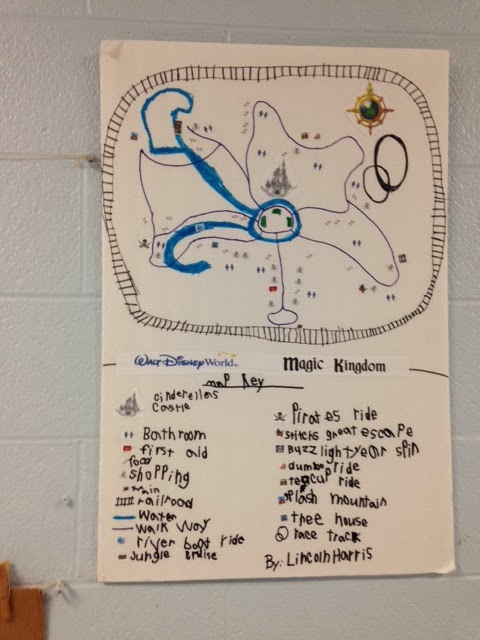 WALT DISNEY World. Magic Kingdom
map Key
Cinderellers
Castle
Bathroom
first aid
food
shopping
train
railroad
Water
walk way
river boat ride
Jungle Bruise
Pirates ride
stitchs great escape
Buzz lightyear spin
dumbo ride
teacup ride
splash mountain
tree house
race track
By: Lincoln Harris